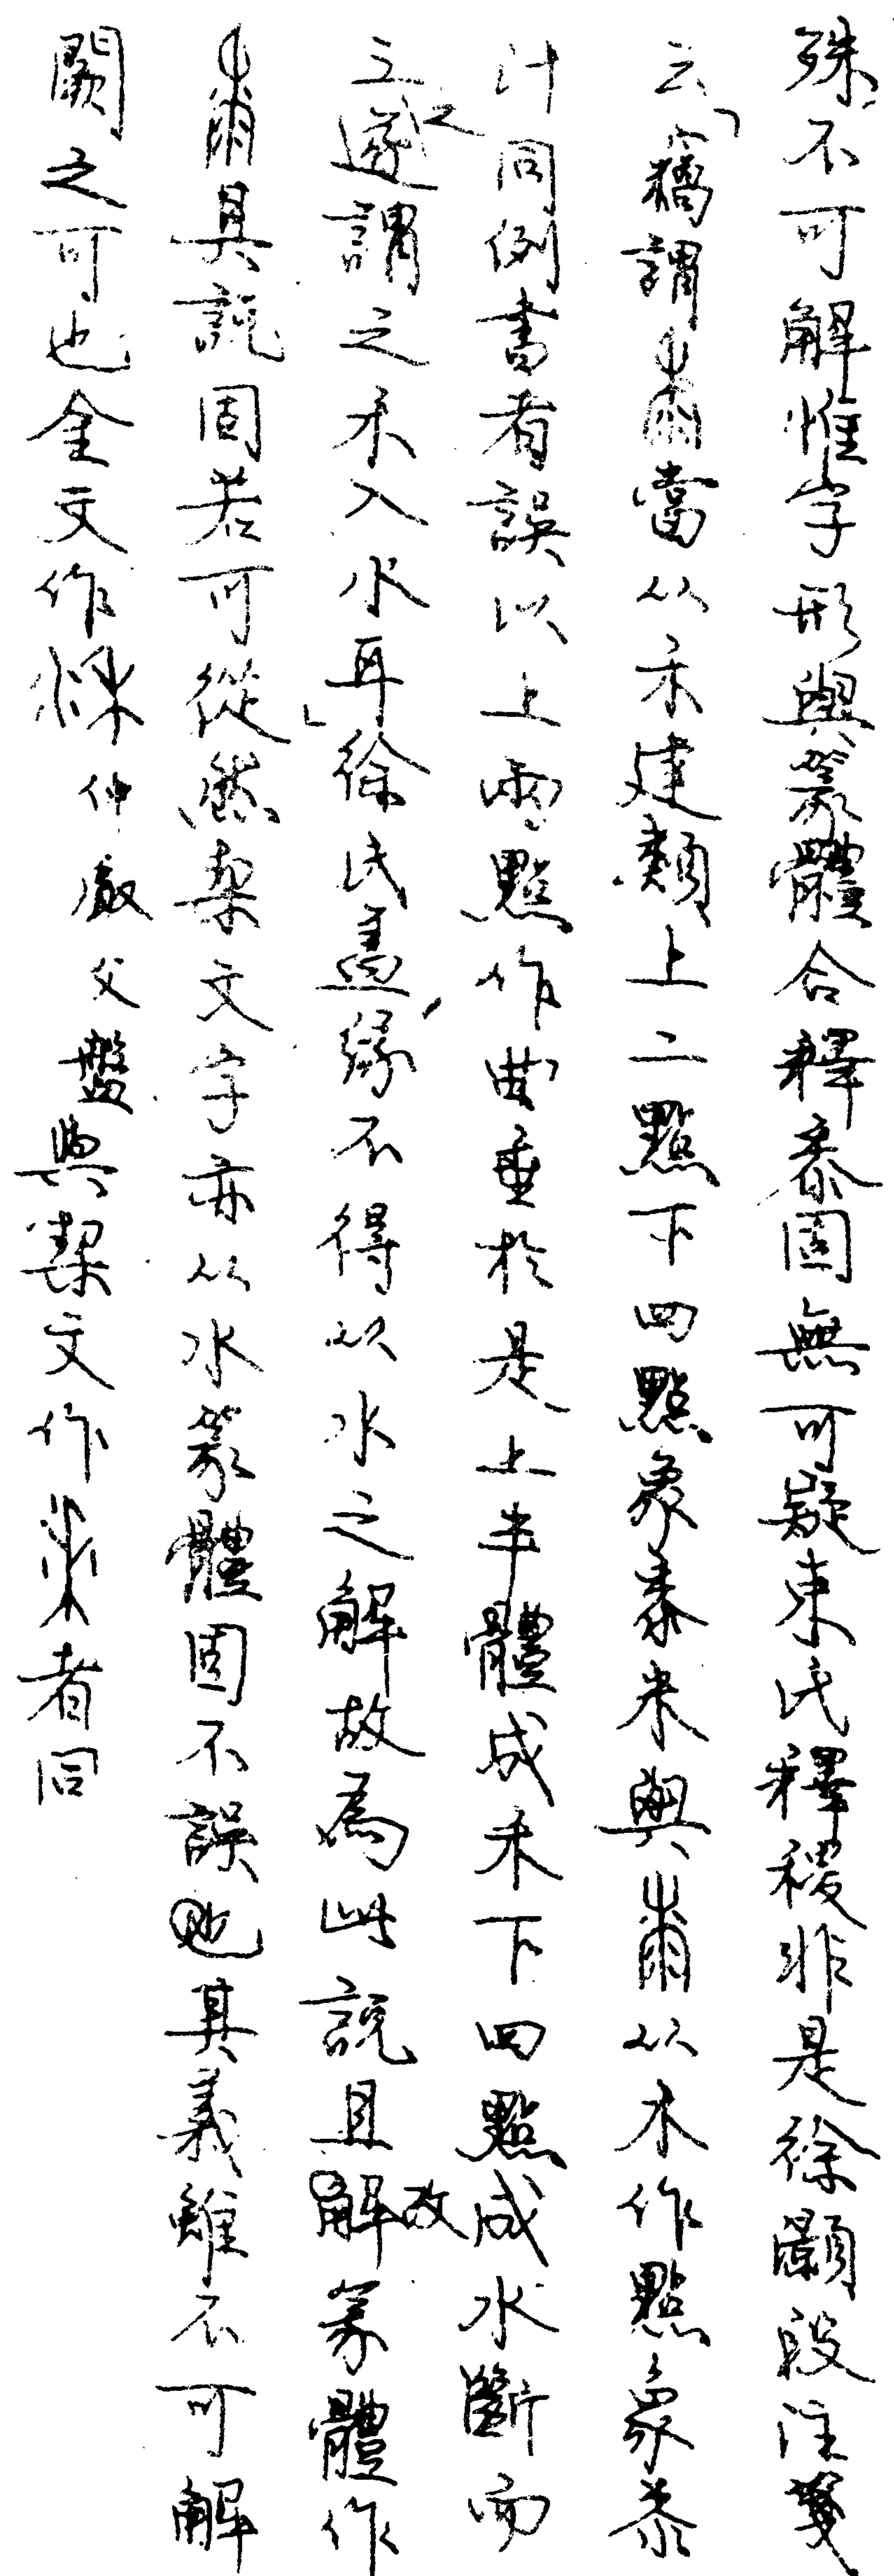 殊不可解惟字形與篆體合釋黍固無可疑束氏釋稷非是徐灝段注箋
云「竊謂當从禾建類上二點下四點象黍米與从木作點象黍
汁同例書者誤以上兩點作曲垂於是上半體成禾下四點成水斷而
之遂謂之禾入水耳」徐氏蓋緣不得从水之解故為此說且改篆體作
其說固若可從然栔文字亦从水篆體固不誤也其義雖不可解
闕之可也金文作仲𠭯父盤與栔文作者同